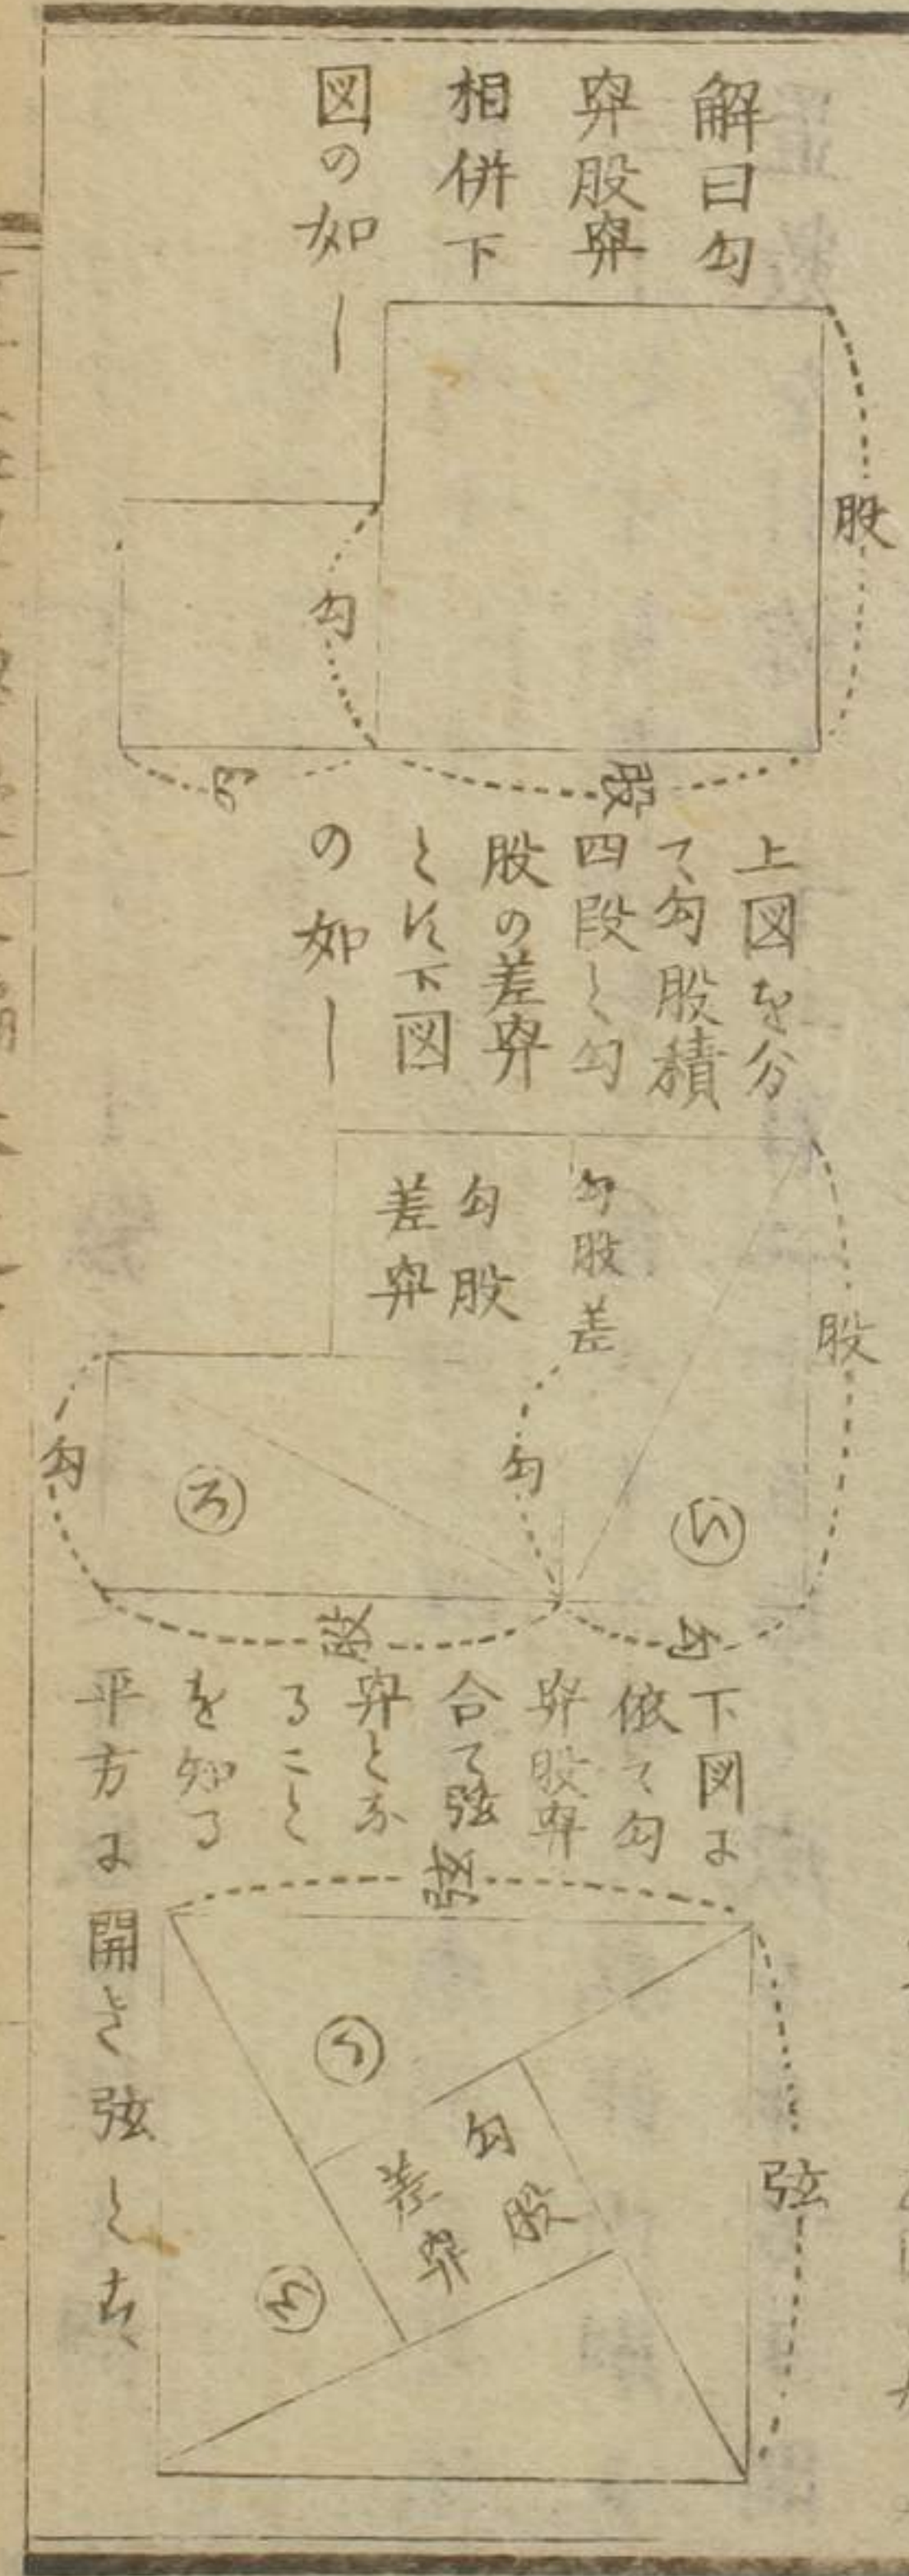 解曰勾
羃股羃
相併下
図の如し
股
勾
股
勾
上図を分
て勾股積
四段と勾
股の差羃
とす下図
の如し
股
勾股差
勾股
差羃
勾
勾
い
ろ
勾
股
下図に
依て勾
羃股羃
合て弦
羃とな
ること
を知る
平方に開き弦とす
弦
弦
い
勾股
差羃
ろ